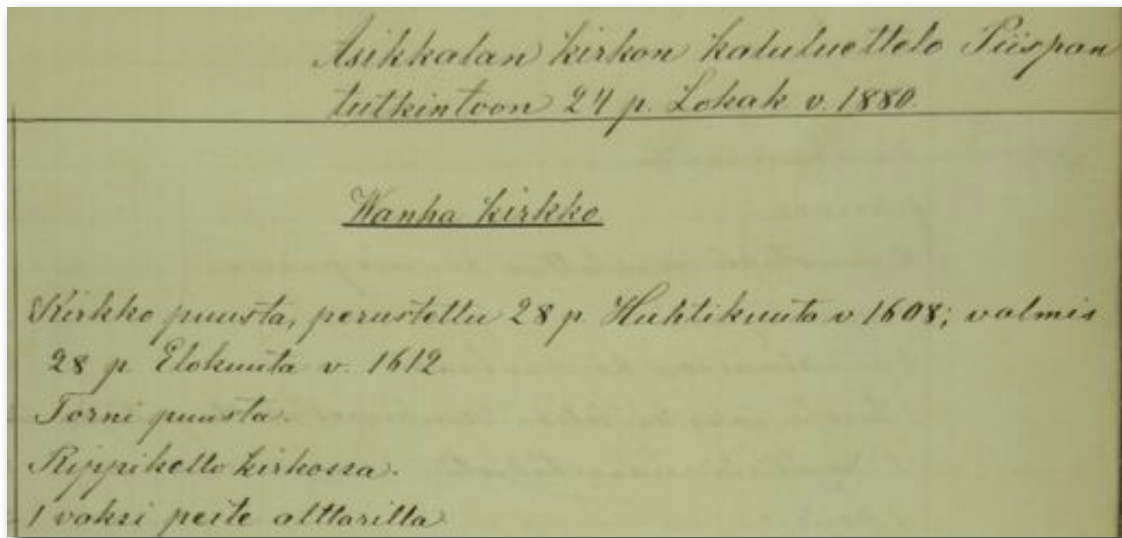 Asikkalan kirkon kaluluettelo Piispan
tutkintoon 24 p. Lokak v. 1880.
Wanha kirkko
Kirkko puusta, perustettu 28 p. Huhtikuuta v 1608; valmis
28 p. Elokuuta v. 1612
Torni puusta.
Rippikello kirkossa.
1 vaksi peite alttarilla